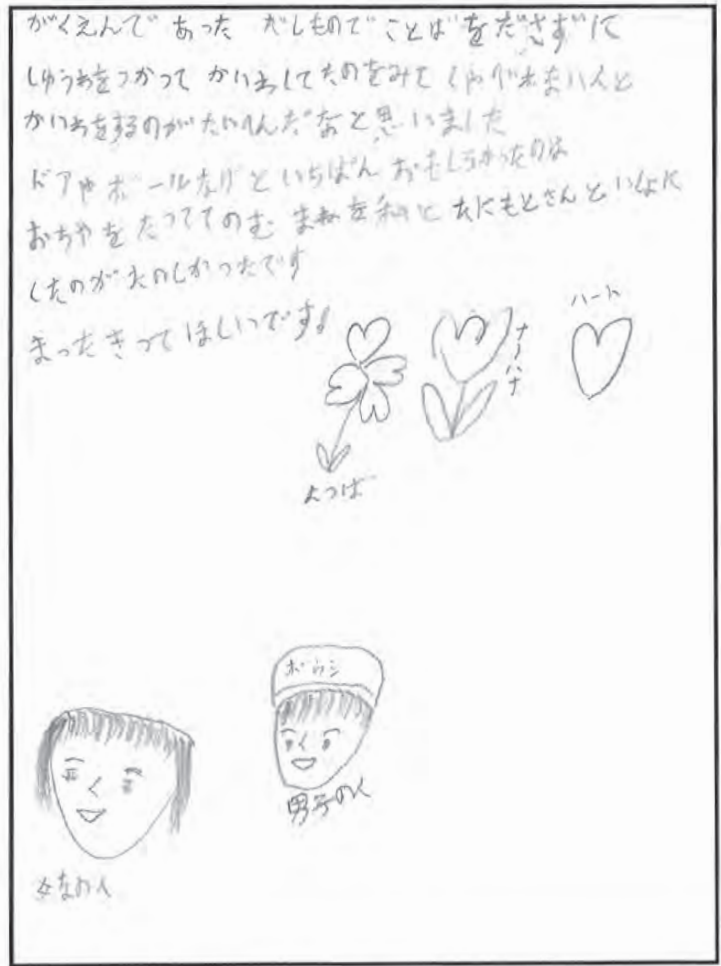 がくえんで あった だしもので ことばをださずに
しゅうわをつかって かいわしてたのをみて しゃべれないんと
かいわをするのがたいへんだなと思いました
ドアやボールなげといちばん おもしろかったのは
おちゃを たってての む まねを私と たにもとさんといしょに
したのがたのしかったです
まったきってほしいです!
ハート
ナノハナ
よつば
ボウシ
男子の人
女なの人